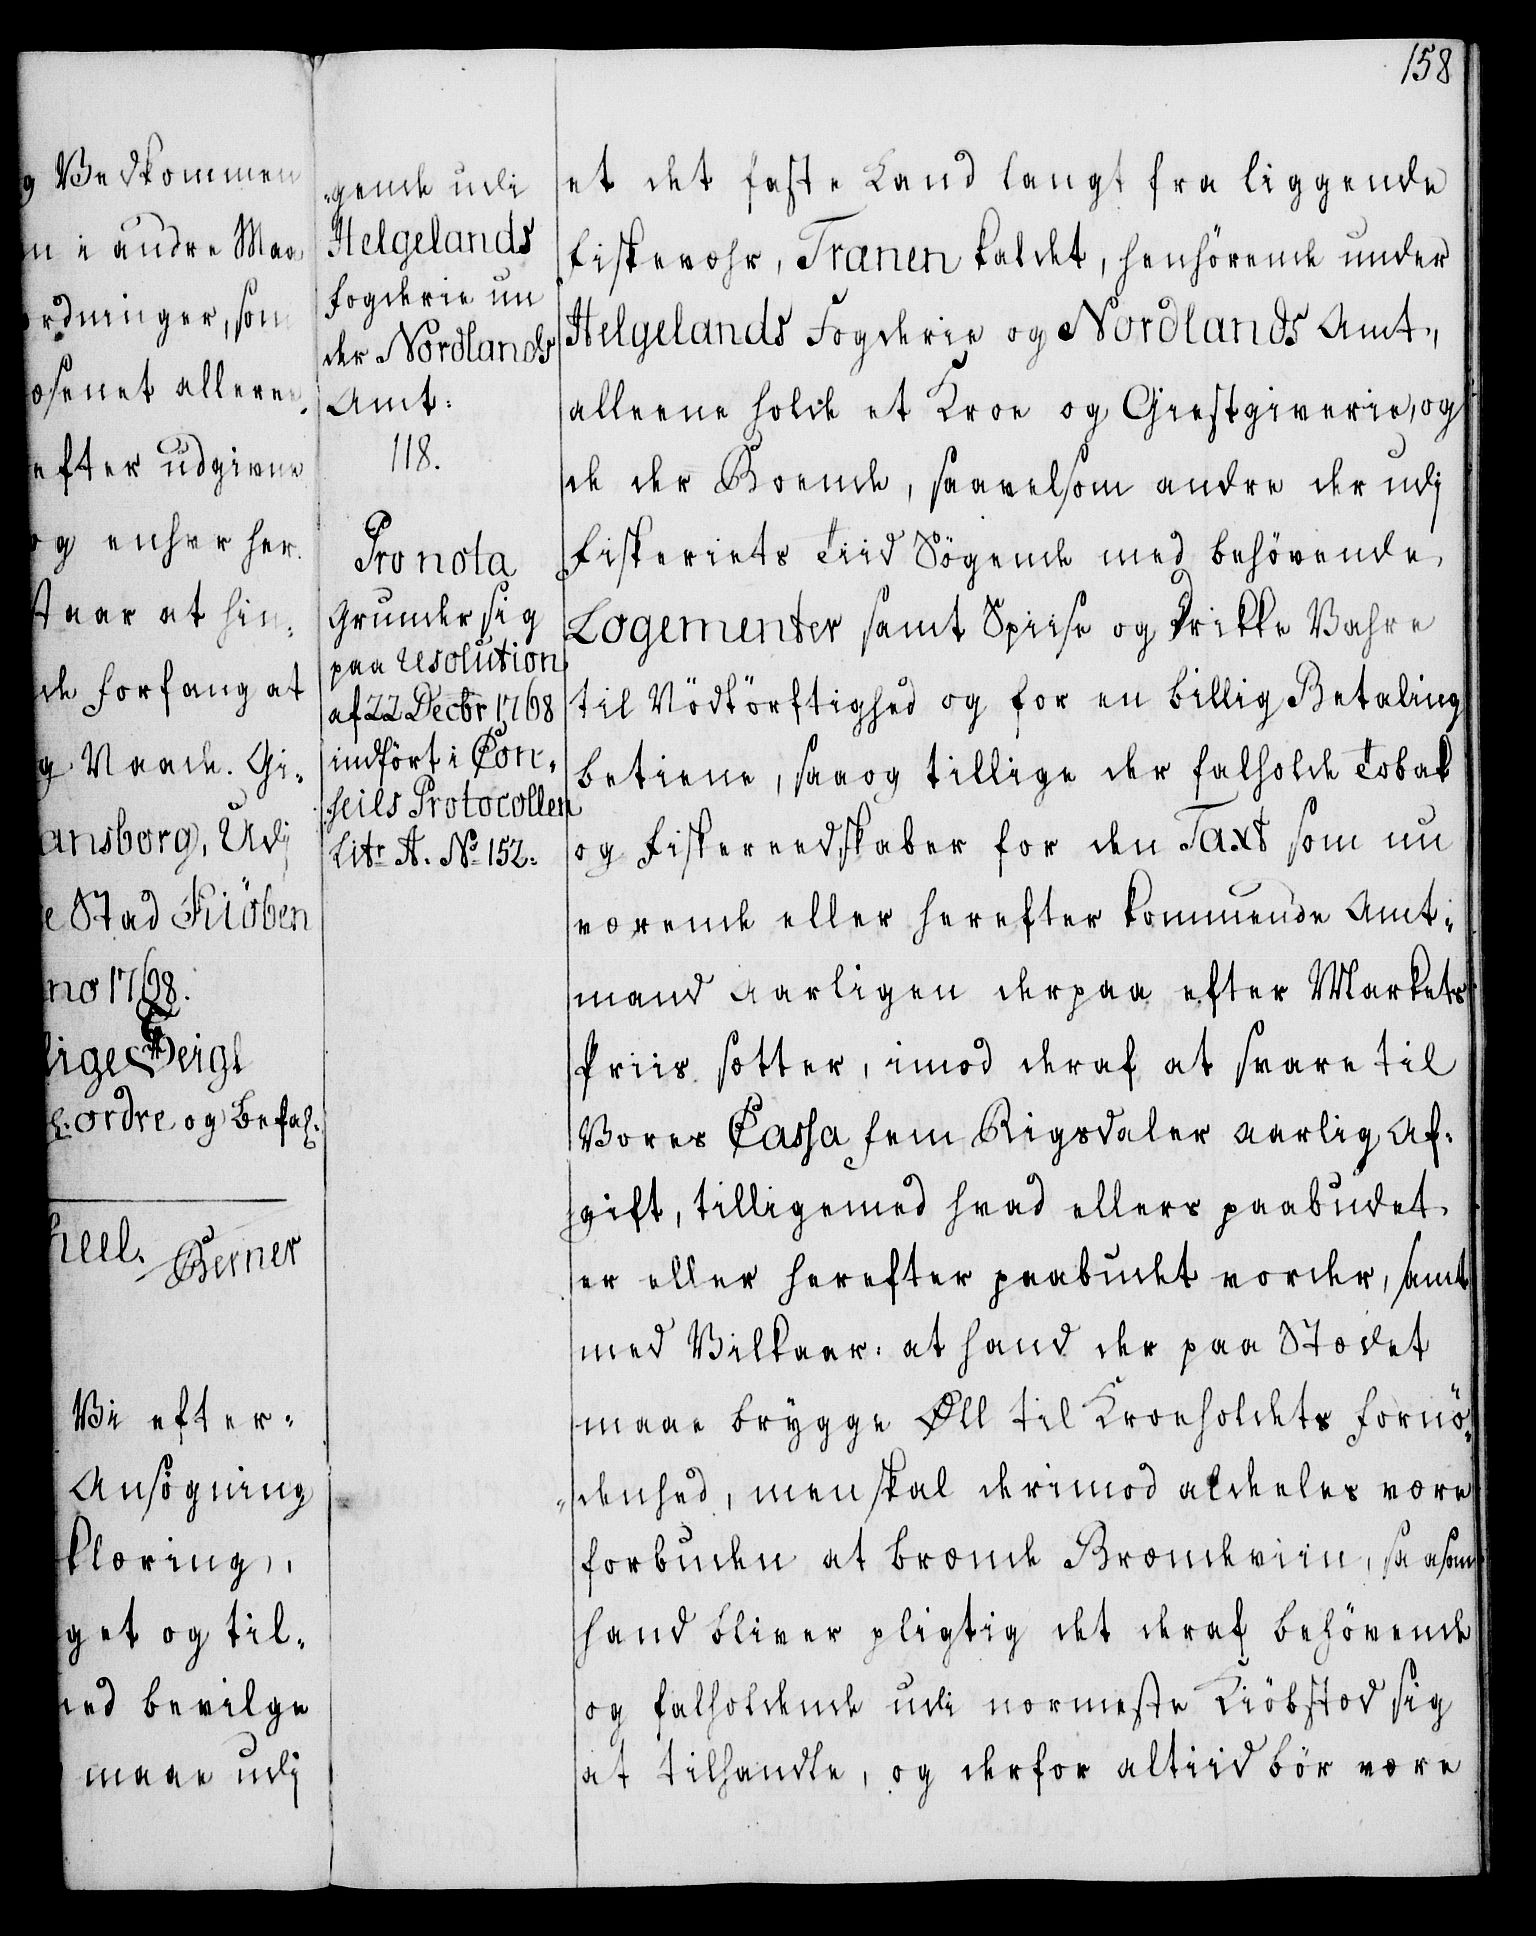 158
g Vedkommen
n i andre Maa
ordninger, som
æsenet alleree,
efter udgivne
og enhver her.
staar at hin,
de forfang at
g Naade. Gi,
ansborg, Udj
e Stad Kiöben
no 1768.
lige Seigl
l: ordre og Befal:
heel. Berner
Vi efter,
Ansögning
klæring,,
get og til,
ed bevilge
maae udj
,gende udi
Helgelands
fogderie un
der Nordlands
Amt:
118.
Pro nota
Grunder sig
paa resolution
af 22 Decbr 1768
indfört i Con,
,seils Protocollen
Litr A. No 152:
et det faste Land langt fra liggende
Fiskevæhr, Trænen kaldet, henhörende under
Helgelands Fogderie og Nordlands Amt,
alleene holde et Kroe og Giestgiverie, og
de der Boende, saavelsom andre der udj
Fiskeriets Tiid Sögende med behövende
Logementer samt Spiise og Drikke Vahre
til Nödtörftighed og for en billig Betaling
betiene, saa og tillige der falholde Tobak
og Fiskereedskaber for den Taxt som nu
værende eller herefter kommende Amt,
mand aarligen derpaa efter Markets
Priis sætter, imod deraf at svare til
Vores Cassa fem Rigsdaler aarlig Af,
gift, tilligemed hvad ellers paabudet
er eller herefter paabudet vorder, samt
med Vilkaar: at hand der paa Stædet
maae brygge Øll til Kroeholdets fornö,
,denhed, men skal derimod aldeeles være
forbuden at brænde Brændeviin, saasom
hand bliver pligtig det deraf behövende
og falholdende udi nærmeste Kiöbstæd sig
at tilhandle, og derfor altiid bör være